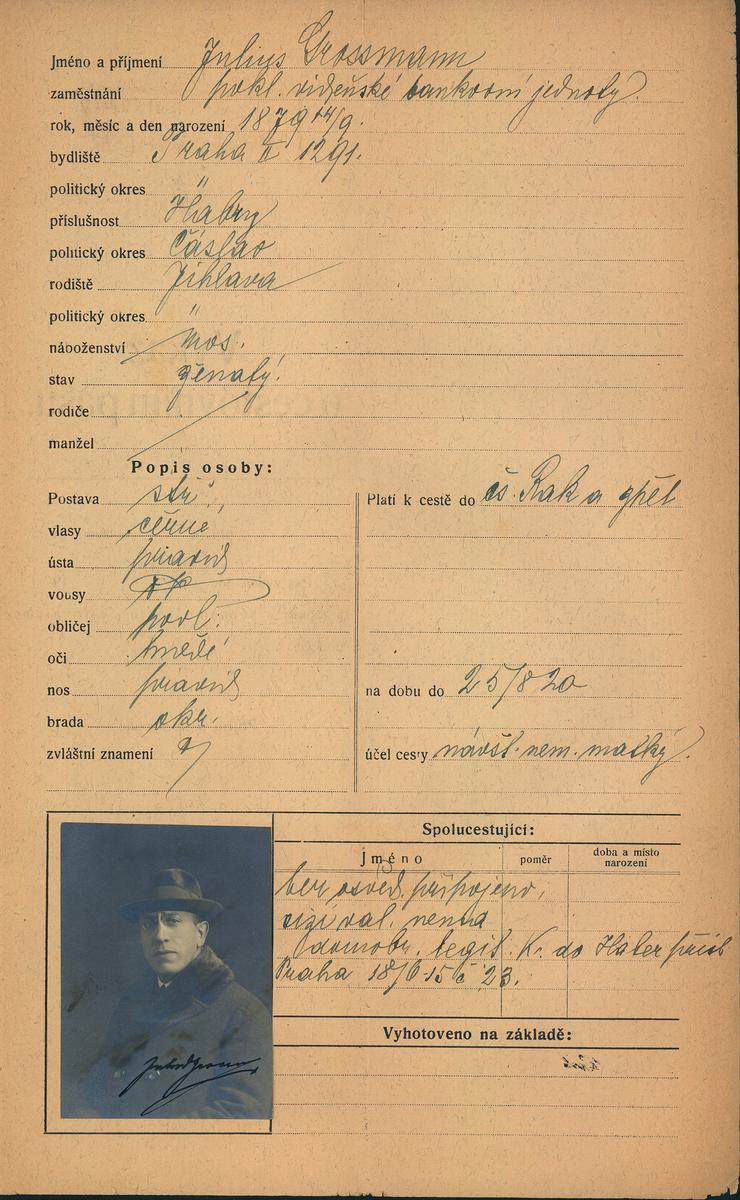 Jméno a příjmení Julius Grossmann
zaměstnání pokl. vídeňské bankovní jednoty
rok, měsíc a den narození 1879 14/9.
bydliště Praha II 1291.
politický okres "
příslušnost Habry
politický okres Čáslav
rodiště Jihlava
politický okres "
náboženství mos.
stav ženatý.
rodiče
manžel
Popis osoby:
Postava stř.
vlasy černé
ústa pravid
vousy
obličej podl.
oči hnědé
nos pravid
brada okr.
zvláštní znamení
Platí k cestě do čs. Rak a zpět
na dobu do 25/8 20
účel cesty návšt. nem. matky.
Spolucestující:
jméno
poměr
doba a místo
narození
osvěd. připojeno,
nemá
domobr. legit. K. do Haber
Praha 18/6 15 č 23.
Vyhotoveno na základě: